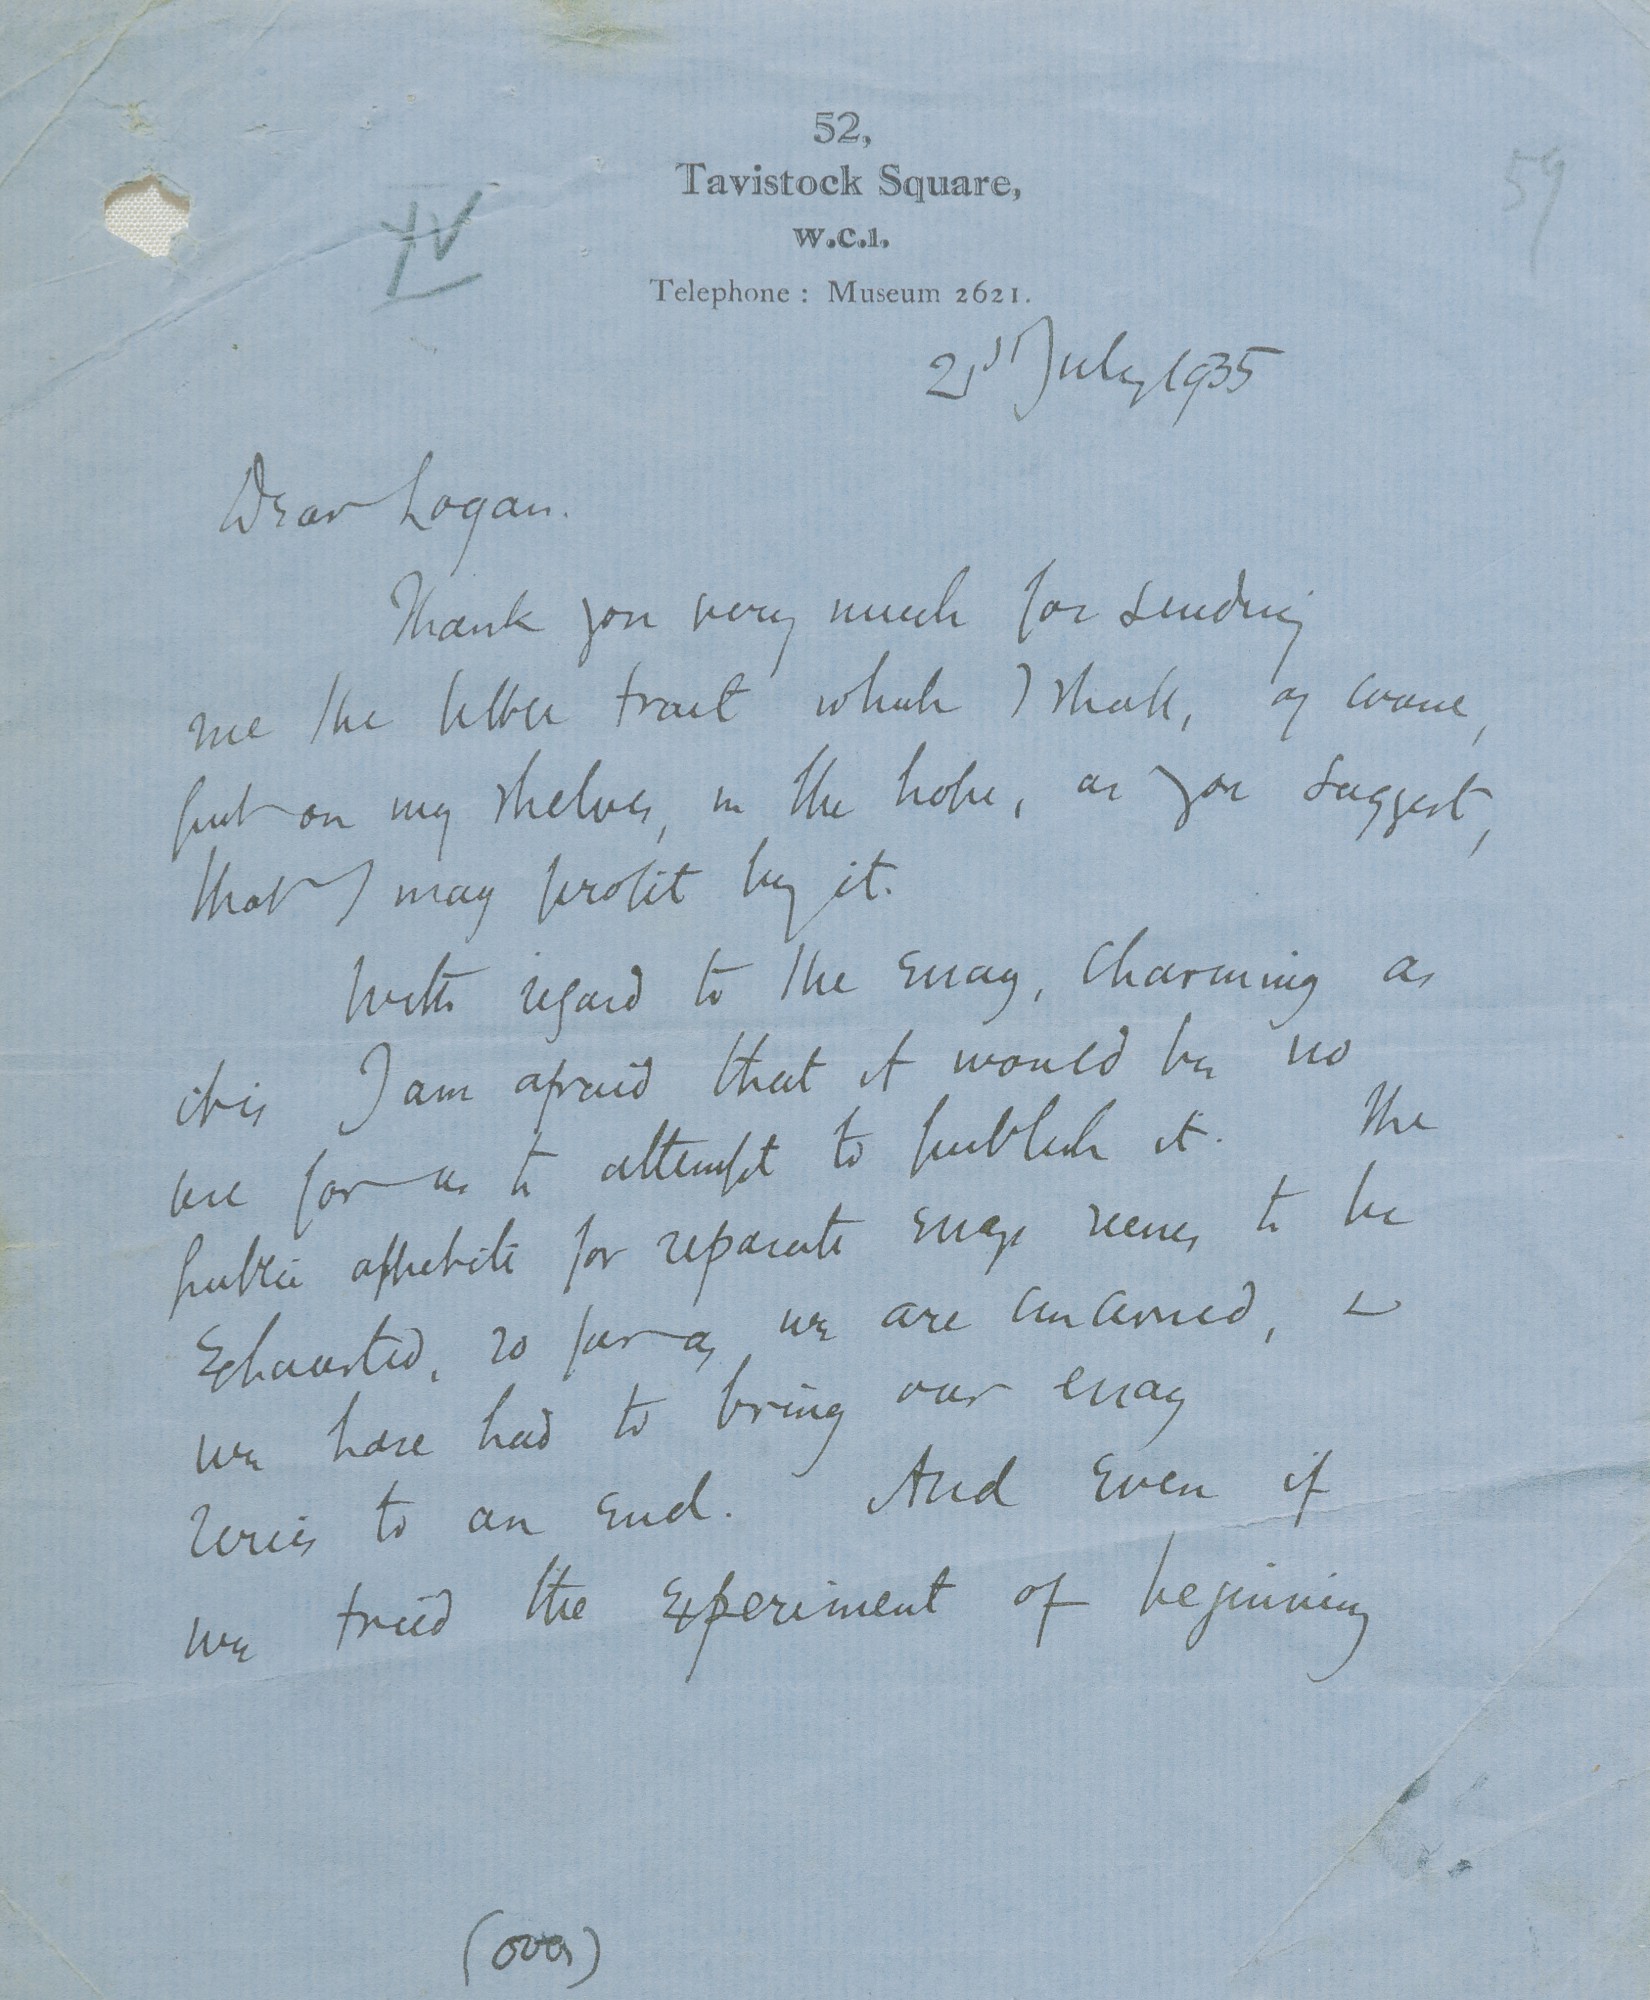 59
52,
Tavistock Square,
W.C.1.
Telephone : Museum 2621.
21st July 1935
Dear Logan.
Thank you very much for sending
me the tract which I shall, of course,
put on my shelves, in the hope, as you suggest,
that I may profit by it.
With regard to the essay, charming as
it is I am afraid that it would be no
use for us to attempt to publish it. The
public appetite for separate essays seems to be
exhausted, so far as we are concerned, &
we have had to bring our essay
series to an end. And even if
we tried the experiment of beginning
(over)